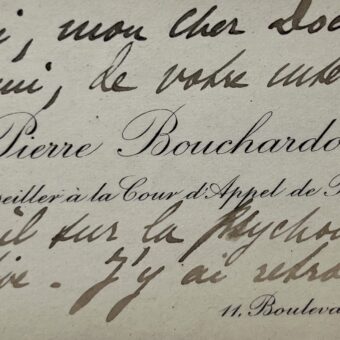 mon cher Doc
de votre
Pierre Bouchardo
eiller à la Cour d'Appel de
il sur la Psycho
J'y ai retro
11. Bouleva